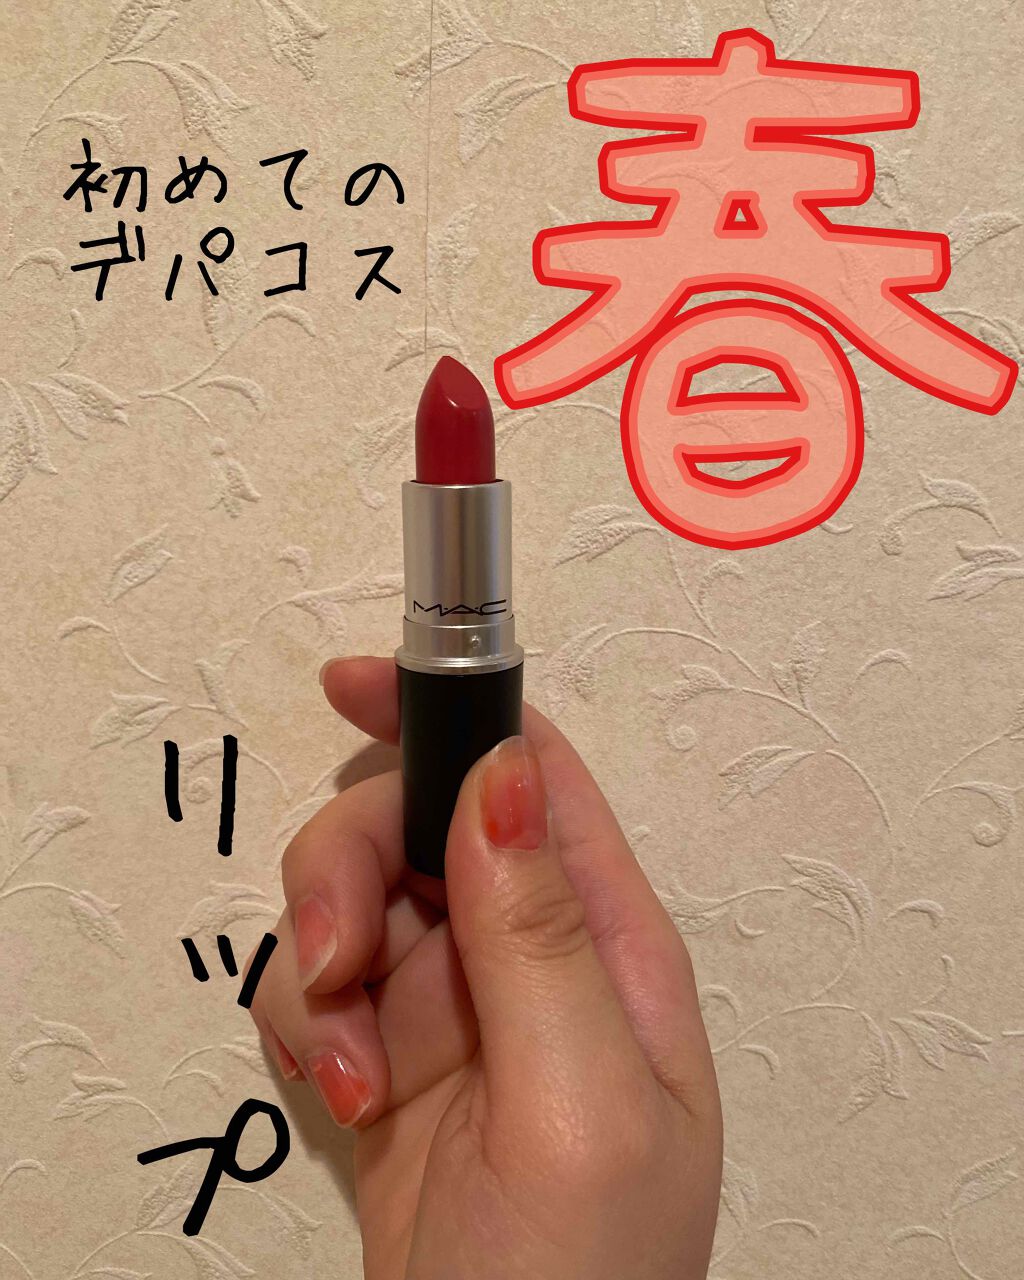 春
初めての
デパコス
M·A·C
リップ